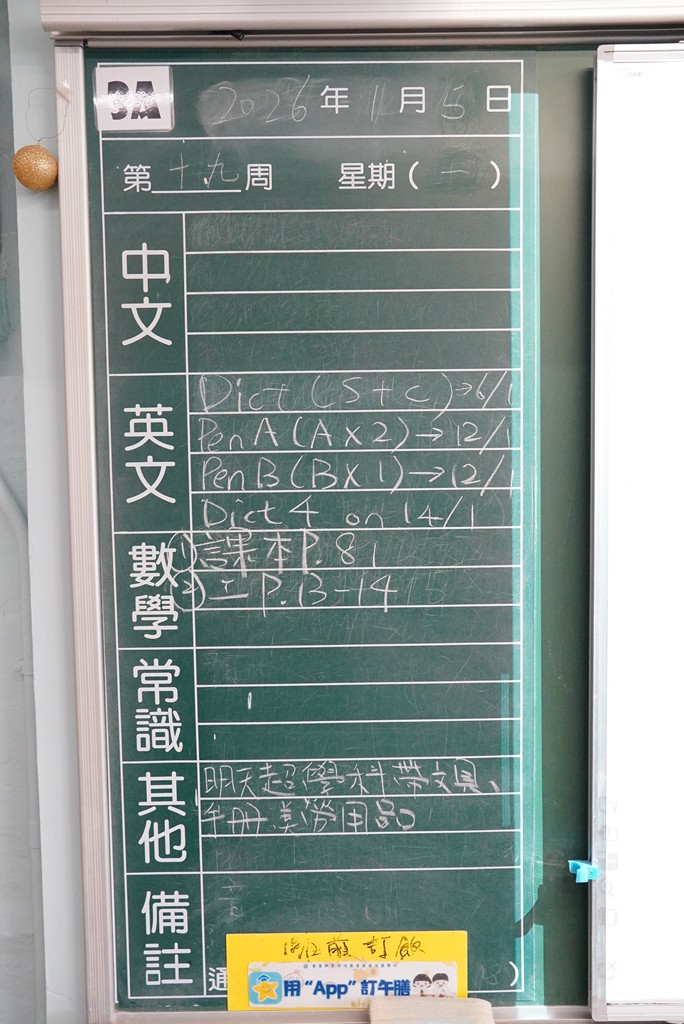 3A 2026年1月5日
第十九周 星期(一)
中文
英文
Dict (S+C)→6/1
Pen A (A×2)→12/1
Pen B (B×1)→12/1
Dict 4 on 14/1
數學
① 課本P.81
② 二 P.13-14
常識
其他
明天起學科帶文具、
手冊 美勞用品
備註
訂飯
通
)
用"App"訂午膳